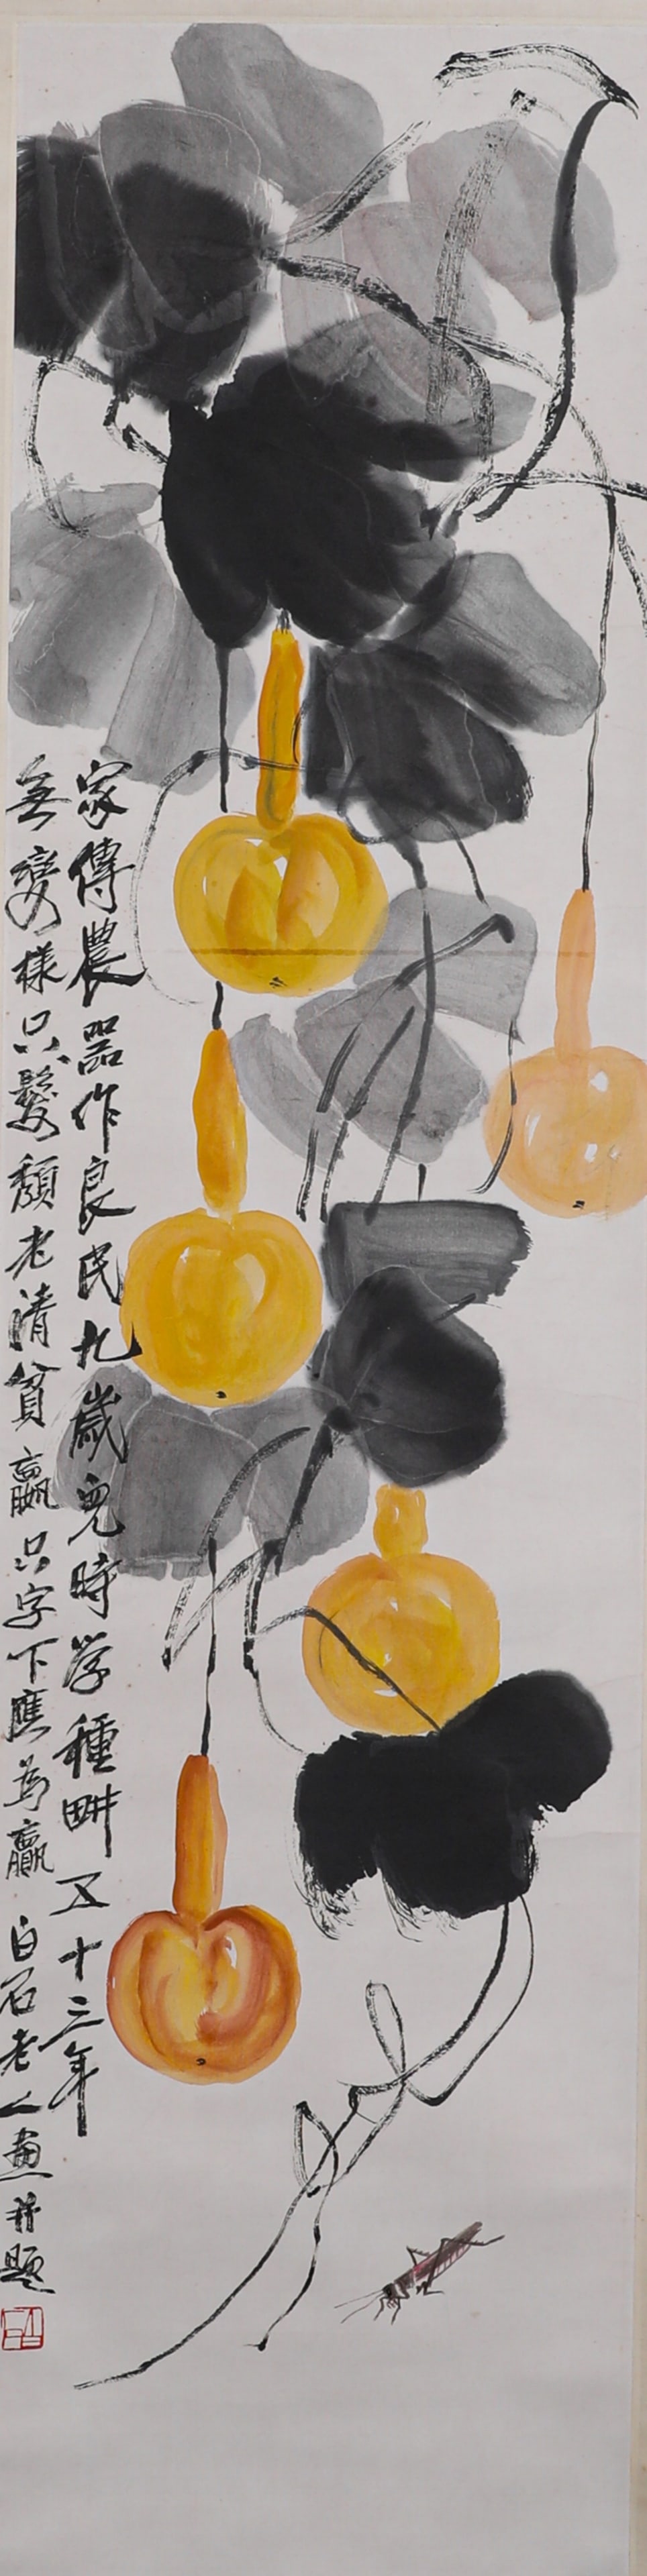 家傳農器作良民九歲兒時學種畊五十三年
無變樣只鬚髮頹老清貧羸只字下應為羸 白石老人畫并題